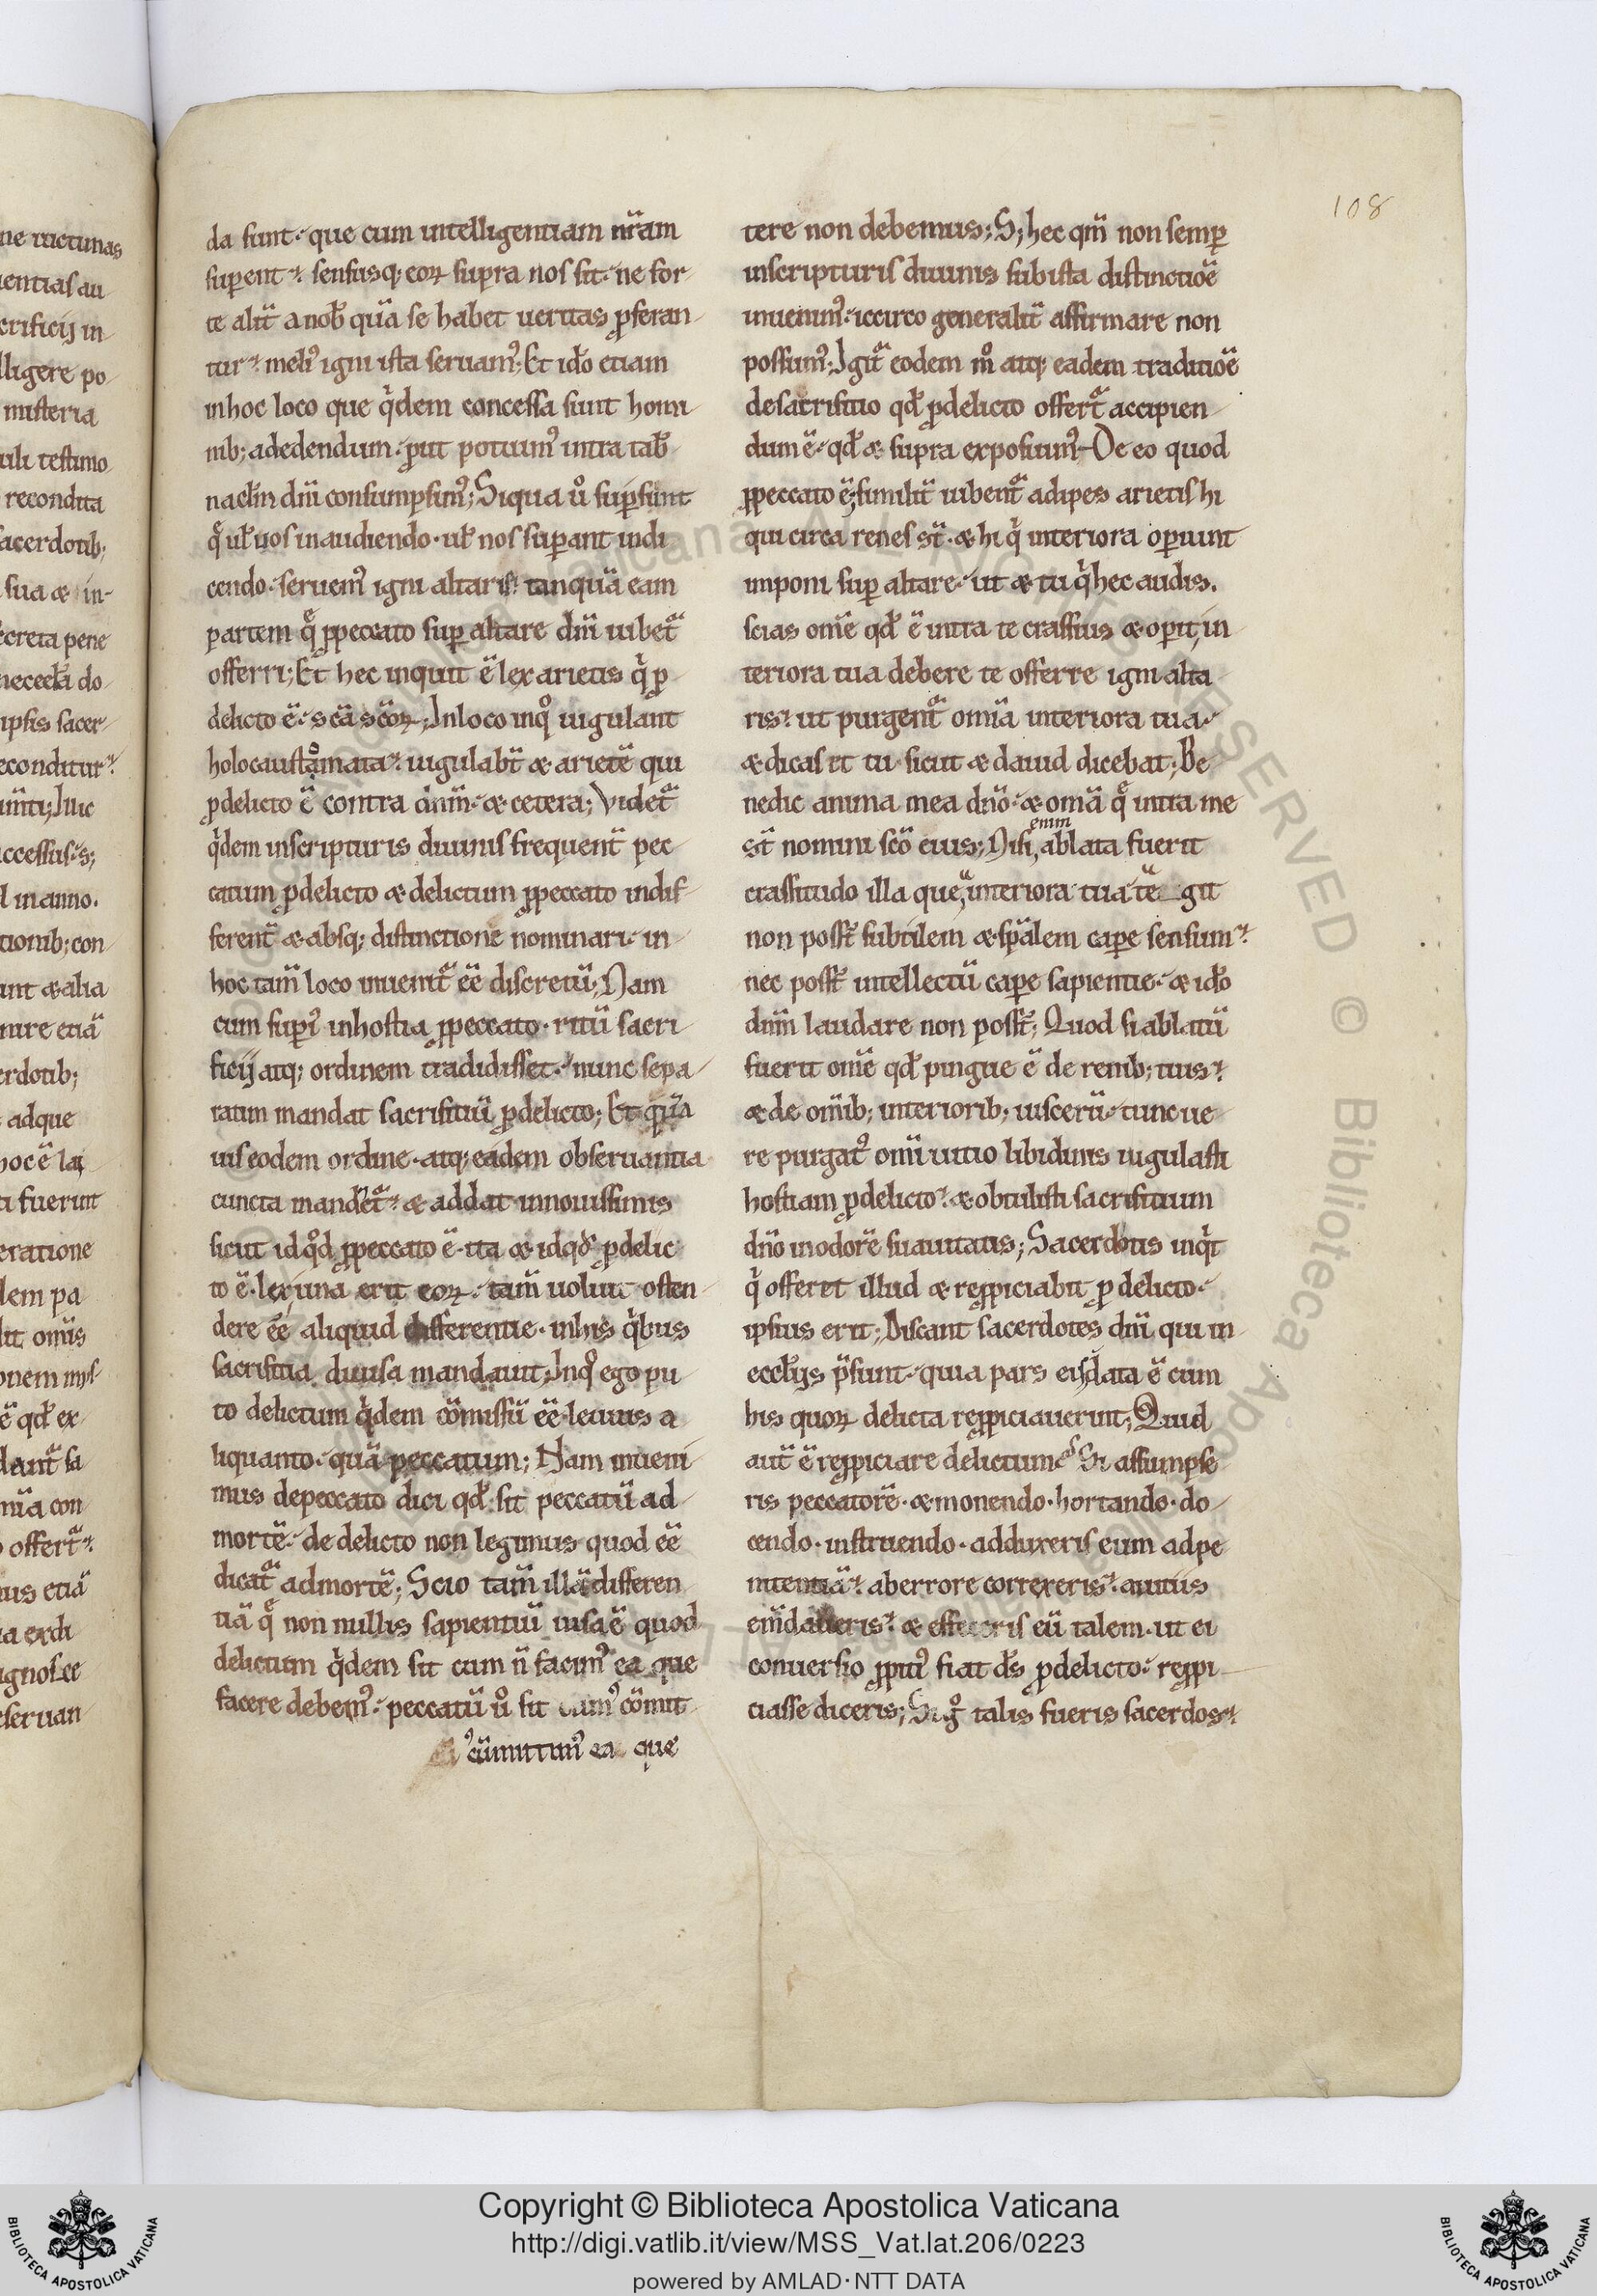 108
da sunt. que cum intelligentiam nr̄am
suꝑent. sensusq; eoꝝ supra nos sit. ne for-
te alit̄ a nob̄ quā se habet ueritas ꝓferan-
tur. meliꝰ igni ista seruamꝰ; Et idō etiam
inhoc loco que q̇dem concessa sunt homi
nib; adedendum. ꝓut potuimꝰ intra tab̄-
nac̄lm dn̄i consumpsimꝰ; Siqua ůo suꝑsunt
q̄ ul̄ uos inaudiendo. ul̄ nos suꝑant indi
cendo. seruemꝰ igni altaris. tanquā eam
partem q̄ ꝓpeccato suꝑ altare dn̄i iubet᷑
offerri; Et hec inquit ē lex arietis q̇ ꝓ
delicto ē. sc̄a sc̄oꝝ; Inloco inqͦ iugulant
holocaustomata. iugulab̄t æ arietē qui
ꝓdelicto ē contra dn̄m. æ cetera; Videt᷑
q̇dem inscripturis diuinis frequent̄ pec
catum ꝓdelicto æ delictum ꝓpeccato indif-
ferent̄ æ absq; distinctione nominari. in-
hoc tam̄ loco inuenit᷑ eē discretū; Nam
cum supꝰ inhostia ꝓpeccato. ritū sacri
ficij atq; ordinem tradidisset. nunc sepa-
ratim mandat sacrifitiū ꝓdelicto; Et quā
uis eodem ordine. atq; eadem obseruantia
cuncta mandet᷑. æ addat innouissimis
sicut id qͦd ꝓpeccato ē. ita æ id qd̄ ꝓdelic-
to ē. lex una erit eoꝝ. tam̄ uoluit osten-
dere eē aliquid differentie. inhis q̇bus
sacrifitia diuisa mandauit; Inqͦ ego pu
to delictum q̇dem cōmissū eē leuius a
liquanto. quā peccatum; Nam inueni
mus depeccato dici qd̄ sit peccatū ad-
mortē. de delicto non legimus quod eē
dicat᷑ admortē; Scio tam̄ illā differen
tiā q̄ non nullis sapientiū uisa ē quod
delictum q̇dem sit cum n̄ facimꝰ ea que
facere debemꝰ. peccatū ůo sit cōmit-
cūmittimꝰ ea que
tere non debemus; S; hec qm̄ non semꝑ
inscripturis diuinis sub ista distinctiōe
inuenimꝰ. iccirco generalit̄ affirmare non
possumꝰ; Igit᷑ eodem mͦ atq; eadem traditiōe
desacrifitio qd̄ ꝓdelicto offert᷑ accipien-
dum ē. qd̄ æ supra exposuimꝰ. De eo quod
ꝓpeccato ē; similit̄ iubent᷑ adipes arietis hi
qui circa renes st̄. æ hi q̇ interiora oꝑiunt
imponi suꝑ altare. ut æ tu q̇ hec audis.
scias om̄e qd̄ ē intra te crassius æ oꝑit, in
teriora tua debere te offerre igni alta
ris. ut purgent᷑ omīa interiora tua.
æ dicas et tu sicut æ dauid dicebat; Be
nedic anima mea dn̄o. æ omīa q̄ intra me
st̄ nomini sc̄o eius; Nisi enim ablata fuerit
crassitudo illa que interiora tua te git
non poss̄t subtilem æ spālem caꝑe sensum.
nec poss̄t intellectū caꝑe sapientie. æ idō
dn̄m laudare non poss̄t; Quod si ablatū
fuerit om̄e qd̄ pingue ē de renib; tuis.
æ de om̄ib; interiorib; uiscerū. tunc ue
re purgatꝰ om̄i uitio libidinis iugulasti
hostiam ꝓdelicto. æ obtulisti sacrifitium
dn̄o inodorē suauitatis; Sacerdotis inq̇t
q̇ offeret illud æ reppiciabit ꝓ delicto.
ipsius erit; Discant sacerdotes dn̄i qui in-
eccl̄ijs p̄sunt. quia pars eis data ē cum
his quoꝝ delicta reꝓpiciauerint; Quid
aut̄ ē reꝓpiciare delictum? Si assumpse
ris peccatorē. æ monendo. hortando. do-
cendo. instruendo. adduxeris eum adpe
nitentiā. aberrore correxeris. auitiis
em̄daueris. æ effeceris eū talem. ut ei
conuerso ꝓpitiꝰ fiat ds̄ ꝓdelicto. reꝓpi-
ciasse diceris; Si gͦ talis fueris sacerdos.
ne ructuinas
ientias au
crificij in
lligere po
misteria
uili testimo
recondita
acerdotib;
sua æ in-
ecreta pene
do-
ipsis sacer-
econditur.
ccessus
inanno.
tionib; con
unt æ alia
nire etiā
erdotib;
adque
hoc ē lex
ti fuerint
eratione
dem pa
lit om̄is
onem mys-
ē qd̄ ex-
dant᷑ sa
mīa con
offert᷑.
ius etiā
ia exdi
ignosce
seruan-
© Biblioteca Apostolica Vaticana
Copyright © Biblioteca Apostolica Vaticana
http://digi.vatlib.it/view/MSS_Vat.lat.206/0223
powered by AMLAD·NTT DATA
BIBLIOTECA APOSTOLICA VATICANA
BIBLIOTECA APOSTOLICA VATICANA